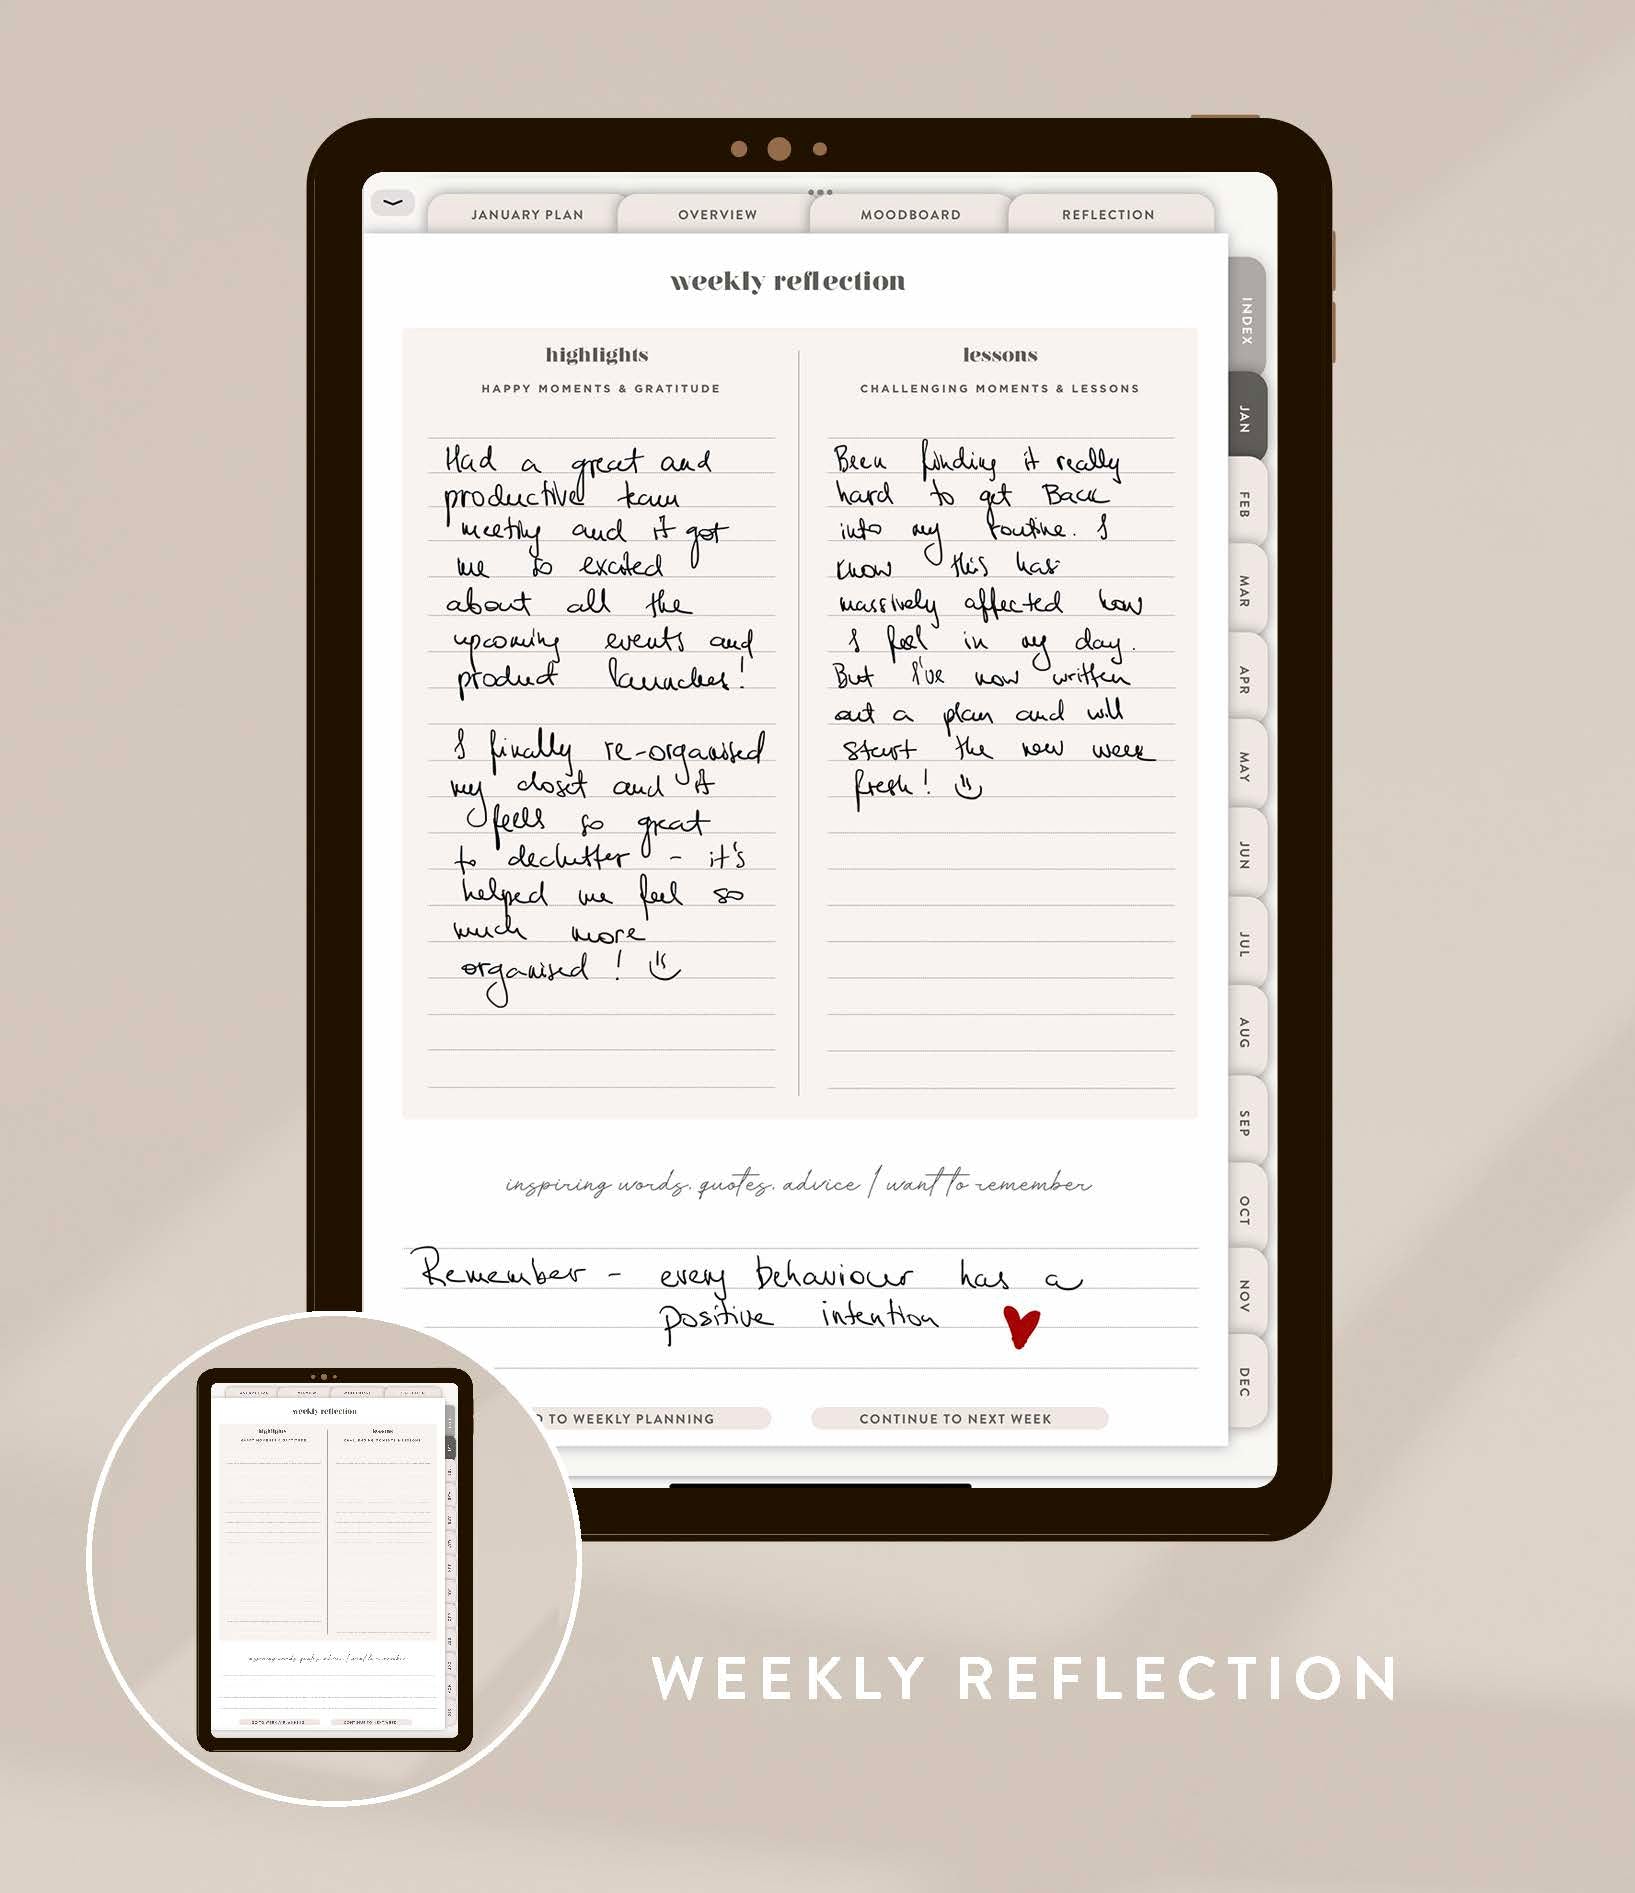 JANUARY PLAN
OVERVIEW
MOODBOARD
REFLECTION
weekly reflection
highlights
HAPPY MOMENTS & GRATITUDE
Had a great and
productive team
meeting and it got
me so excited
about all the
upcoming events and
product launches!
I finally re-organised
my closet and it
feels so great
to declutter - it's
helped me feel so
much more
organised!
lessons
CHALLENGING MOMENTS & LESSONS
Been finding it really
hard to get Back
into my routine. I
know this has
massively affected how
I feel in my day.
But I've now written
out a plan and will
start the new week
fresh!
inspiring words, quotes, advice I want to remember
Remember - every behaviour has a
positive intention
TO WEEKLY PLANNING
CONTINUE TO NEXT WEEK
INDEX
JAN
FEB
MAR
APR
MAY
JUN
JUL
AUG
SEP
OCT
NOV
DEC
weekly reflection
highlights
HAPPY MOMENTS & GRATITUDE
lessons
CHALLENGING MOMENTS & LESSONS
inspiring words, quotes, advice I want to remember
GO TO WEEKLY PLANNING
CONTINUE TO NEXT WEEK
WEEKLY REFLECTION